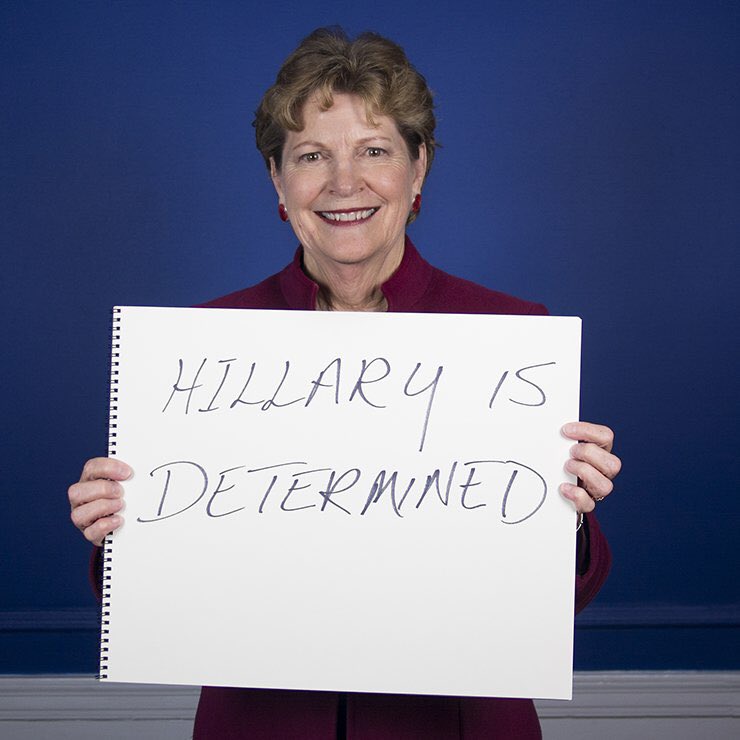 HILLARY IS
DETERMINED